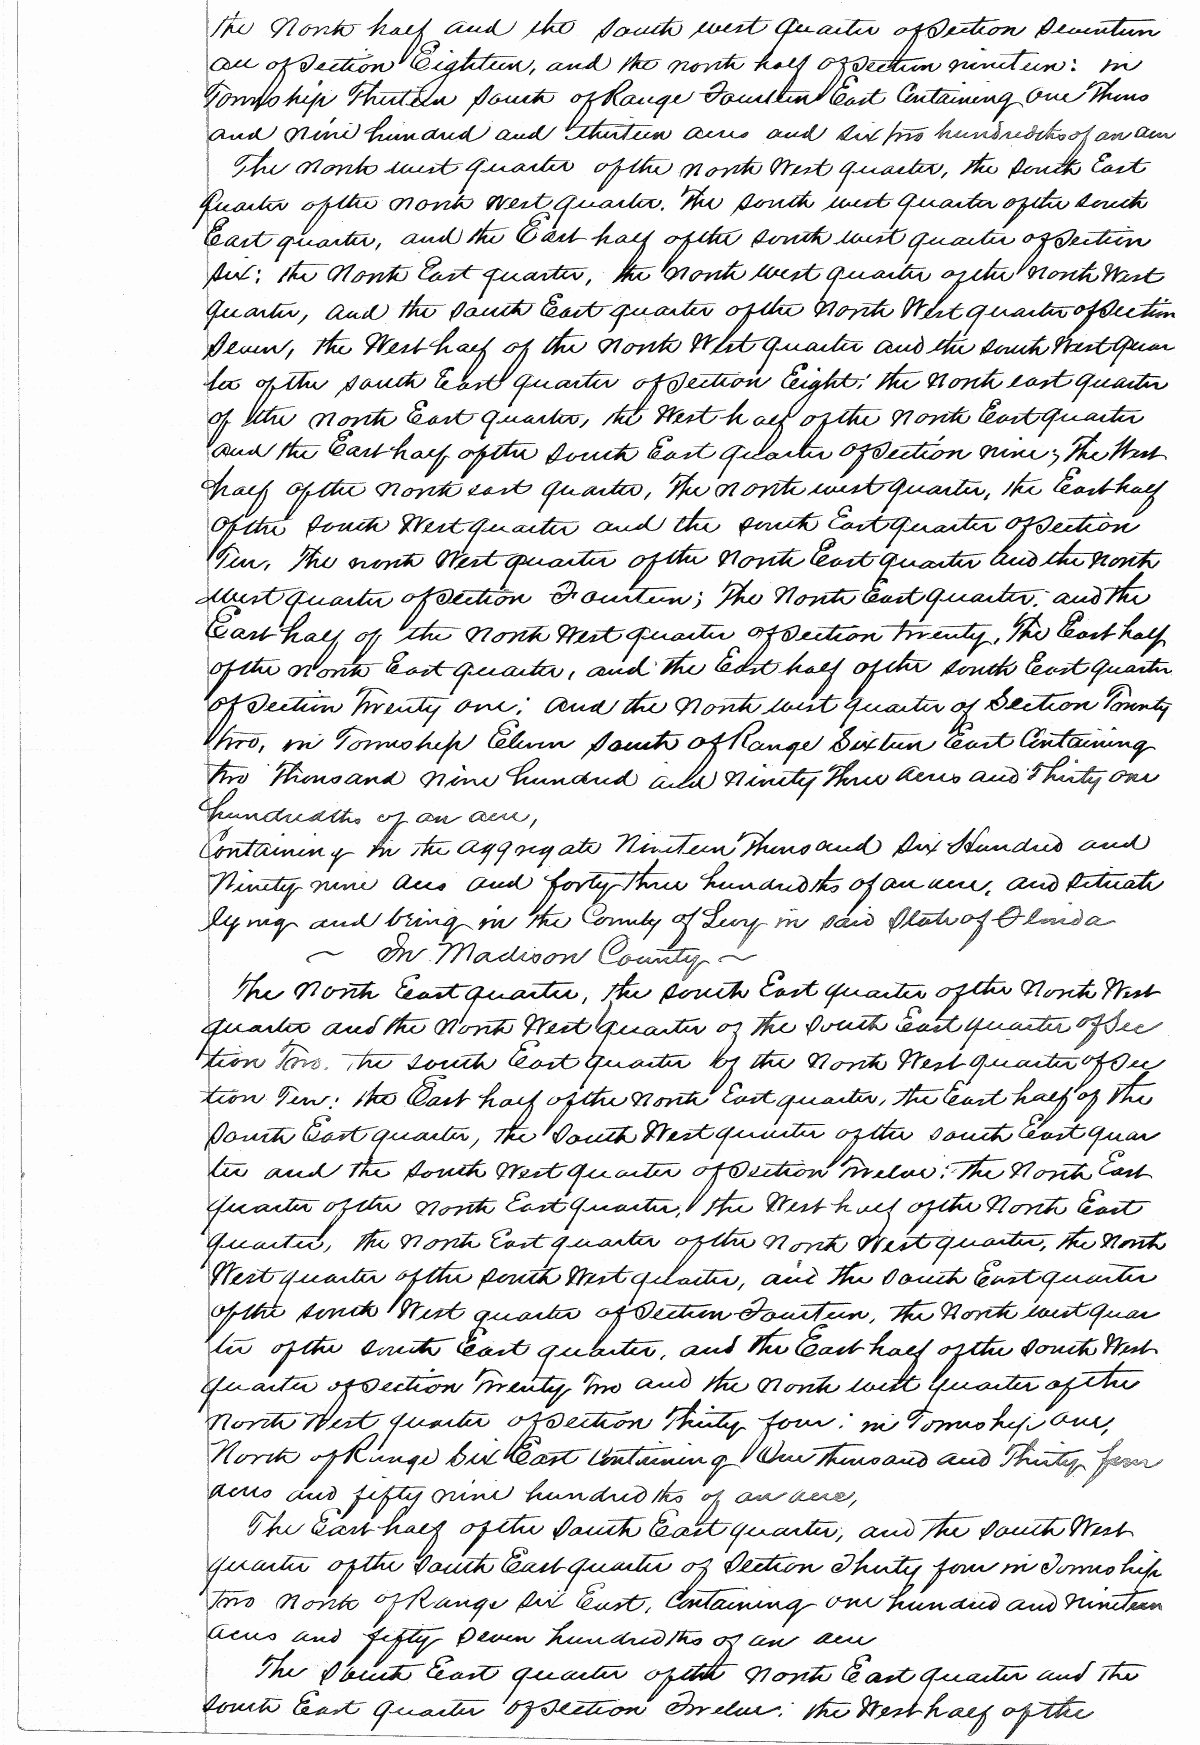 the North half and the South west quarter of Section Seventeen
all of Section Eighteen, and the north half of Section nineteen: in
Township Thirteen South of Range Fourteen East Containing one Thous
and nine hundred and thirteen acres and six two hundredths of an acre
The North west quarter of the North West quarter, the South East
quarter of the North West quarter. The South west quarter of the South
East quarter, and the East half of the South west quarter of Section
Six: the North East quarter, the North west quarter of the North West
quarter, and the South East quarter of the North West quarter of Section
Seven, the West half of the North West quarter and the South West quar
ter of the South East quarter of Section Eight: the North east quarter
of the North East quarter, the West half of the North East quarter
and the East half of the South East quarter of Section nine; The West
half of the North east quarter, The North west quarter, the East half
of the South West quarter and the South East quarter of Section
Ten, The north West quarter of the North East quarter and the North
west quarter of Section Fourteen; The North East quarter: and the
East half of the North West quarter of Section twenty, The East half
of the North East quarter, and the East half of the South East quarter
of Section Twenty one: and the North west quarter of Section Twenty
two, in Township Eleven South of Range Sixteen East Containing
two Thousand nine hundred and Ninety Three acres and Thirty one
hundredths of an acre,
Containing in the aggregate Nineteen Thousand Six Hundred and
Ninety nine acres and forty three hundredths of an acre, and situate
lying and being in the County of Levy in said State of Florida
~ In Madison County ~
The North East quarter, the South East quarter of the North West
quarter and the North West quarter of the South East quarter of Sec
tion Two. The South East quarter of the North West quarter of Sec
tion Ten: the East half of the North East quarter, the East half of the
South East quarter, the South West quarter of the South East quar
ter and the South West quarter of Section Twelve: the North East
quarter of the North East quarter, the West half of the North East
quarter, the North East quarter of the North West quarter, the North
West quarter of the South West quarter, and the South East quarter
of the South West quarter of Section Fourteen, the North west quar
ter of the South East quarter, and the East half of the South West
quarter of Section Twenty Two and the North west quarter of the
North West quarter of Section Thirty four: in Township one,
North of Range Six East Containing One thousand and Thirty four
acres and fifty nine hundredths of an acre,
The East half of the South East quarter, and the South West
quarter of the South East quarter of Section Thirty four in Township
Two North of Range Six East, Containing one hundred and nineteen
acres and fifty seven hundredths of an acre
The South East quarter of the North East quarter and the
South East quarter of Section Twelve: the West half of the